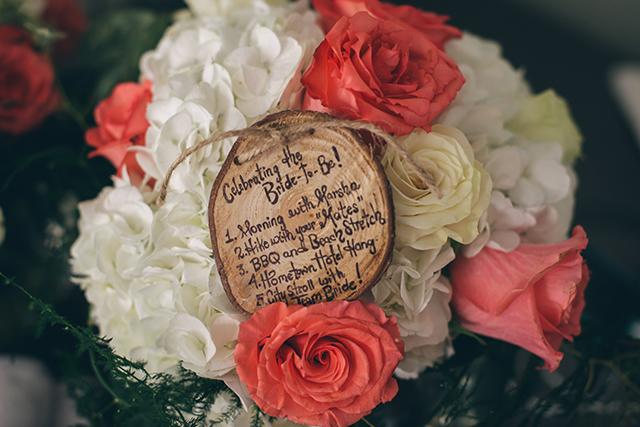 Celebrating the
Bride-to-Be!
1. Morning with Marsha
2. Hike with your "Mates"
3. BBQ and Beach Stretch!
4. Hometown Hotel Hang
5. City Stroll with
Team Bride!